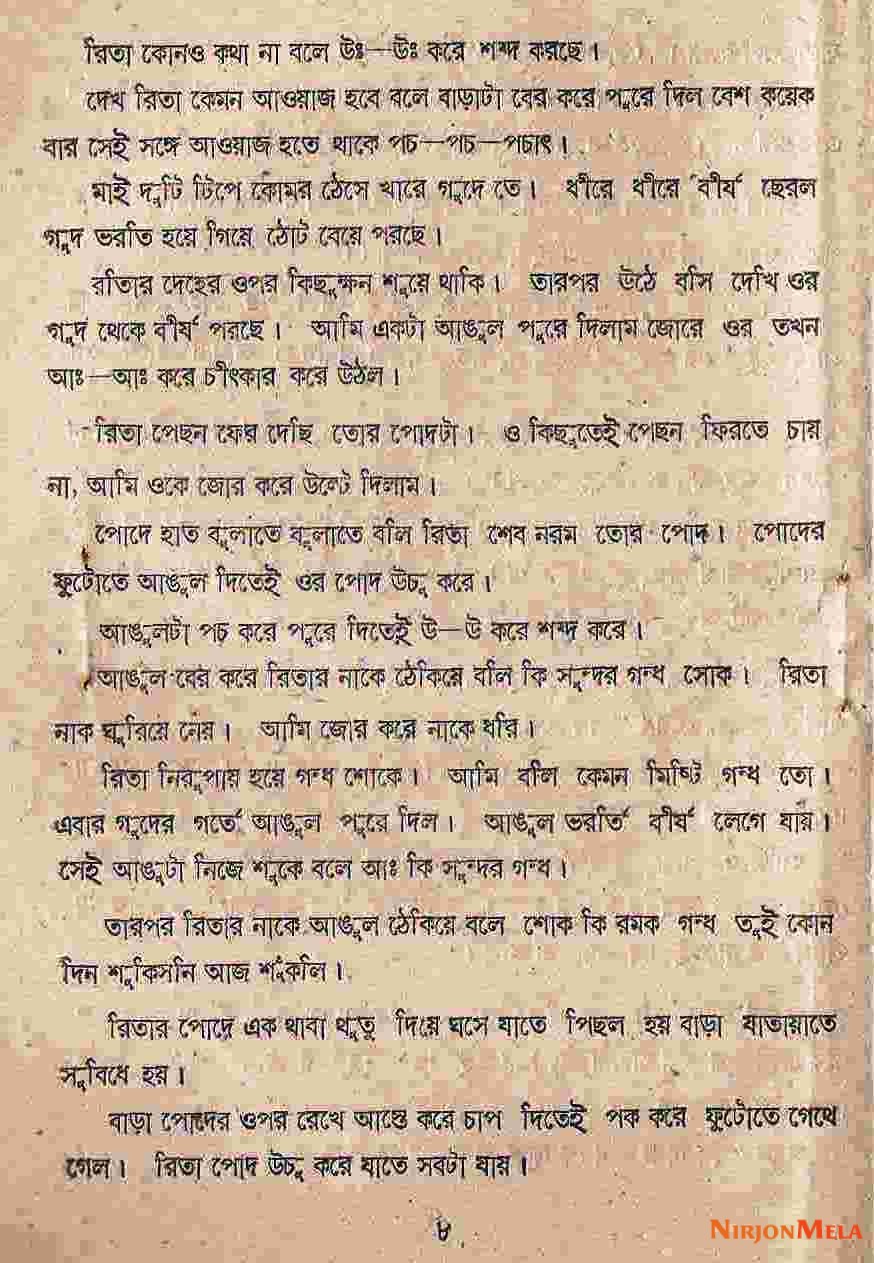 রিতা কোনও কথা না বলে উঃ—উঃ করে শব্দ করছে।
দেখ রিতা কেমন আওয়াজ হবে বলে বাড়াটা বের করে পুরে দিল বেশ কয়েক
বার সেই সঙ্গে আওয়াজ হতে থাকে পচ—পচ—পচাৎ।
মাই দুটি টিপে কোমর ঠেসে ধরে গুদে তে। ধীরে ধীরে বীর্য ছেরল
গুদ ভরতি হয়ে গিয়ে ঠোট বেয়ে পরছে।
রতিার দেহের ওপর কিছুক্ষন শুয়ে থাকি। তারপর উঠে বসি দেখি ওর
গুদ থেকে বীর্য পরছে। আমি একটা আঙুল পুরে দিলাম জোরে ওর তখন
আঃ—আঃ করে চীৎকার করে উঠল।
রিতা পেছন ফের দেছি তোর পোদটা। ও কিছুতেই পেছন ফিরতে চায়
না, আমি ওকে জোর করে উল্টে দিলাম।
পোদে হাত বুলাতে বুলাতে বলি রিতা শেব নরম তোর পোদ। পোদের
ফুটোতে আঙুল দিতেই ওর পোদ উচু করে।
আঙুলটা পচ করে পুরে দিতেই উ—উ করে শব্দ করে।
আঙুল বের করে রিতার নাকে ঠেকিয়ে বলি কি সুন্দর গন্ধ সোক। রিতা
নাক ঘুরিয়ে নেয়। আমি জোর করে নাকে ধরি।
রিতা নিরুপায় হয়ে গন্ধ শোকে। আমি বলি কেমন মিষ্টি গন্ধ তো।
এবার গুদের গর্তে আঙুল পুরে দিল। আঙুল ভরর্তি বীর্য লেগে যায়।
সেই আঙুটা নিজে শুকে বলে আঃ কি সুন্দর গন্ধ।
তারপর রিতার নাকে আঙুল ঠেকিয়ে বলে শোক কি রমক গন্ধ তুই কোন
দিন শুকিসনি আজ শুঁকলি।
রিতার পোদে এক থাবা থুতু দিয়ে ঘসে যাতে পিছল হয় বাড়া যাতায়াতে
সুবিধে হয়।
বাড়া পোদের ওপর রেখে আস্তে করে চাপ দিতেই পক করে ফুটোতে গেথে
গেল। রিতা পোদ উচু করে যাতে সবটা যায়।
৮
NIRJONMELA